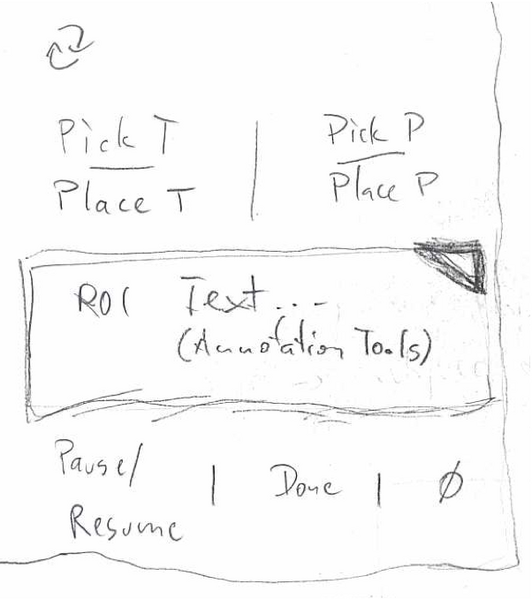 Pick T | Pick P
Place T | Place P
ROI Text...
(Annotation Tools)
Pause/ | Done | Ø
Resume